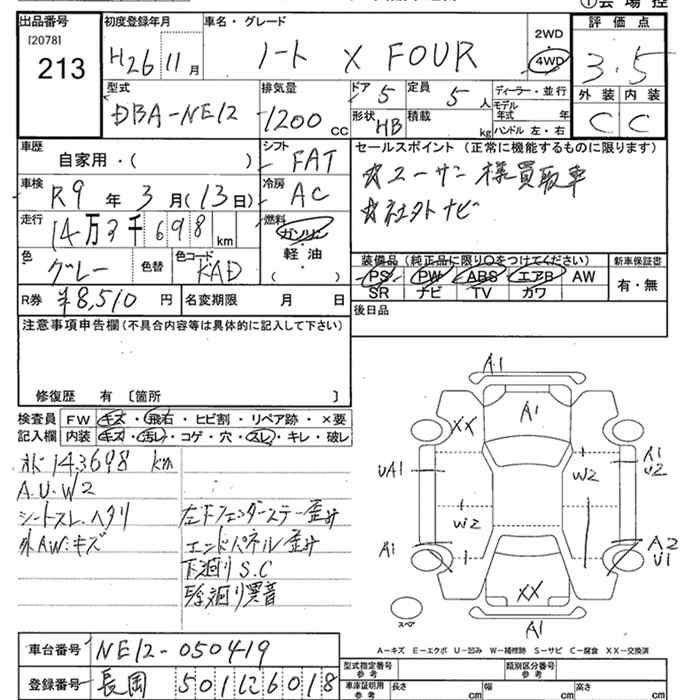 出品番号
[2078]
213
初度登録年月
H26 11 月
車名・グレード
ノート X FOUR
2WD
4WD
評価点
3.5
外装 内装
C C
型式
DBA-NE12
排気量
1200 cc
ドア 5
定員 5 人
形状 HB
積載 kg
ディーラー・並行
モデル年式 年式
ハンドル 左・右
車歴
自家用・( )
シフト FAT
セールスポイント (正常に機能するものに限ります)
☆ユーザー様買取車
☆社外ナビ
車検 R9 年 3 月 (13日)
冷房 AC
走行 14万3千698 km
燃料 ガソリン
軽油
( )
色 グレー
色替
色コード KAD
装備品 (純正品に限り○をつけてください)
PS PW ABS エアB AW
SR ナビ TV ガワ
新車保証書
有・無
R券 ¥8,510 円
名変期限 月 日
後日品
注意事項申告欄 (不具合内容等は具体的に記入して下さい)
修復歴 有 〔箇所 〕
検査員 FW キズ・飛石・ヒビ割・リペア跡・×要
記入欄 内装 キズ・汚レ・コゲ・穴・スレ・キレ・破レ
143,698 km
A.U.W2
シートスレ、ヘタリ
外AW:キズ
左下フェンダーステー歪み
エンドパネル歪み
下廻りS.C
異音
A1
A1
XX
UA1
W2
A1
U2
W2
A1
A2
U1
XX
A1
スペア
A-キズ E-エクボ U-凹み W-補修跡 S-サビ C-腐食 XX-交換済
車台番号 NE12-050419
登録番号 長岡 501 126018
型式指定番号 参考
類別区分番号 参考
車庫証明用 参考 長さ cm 幅 cm 高さ cm